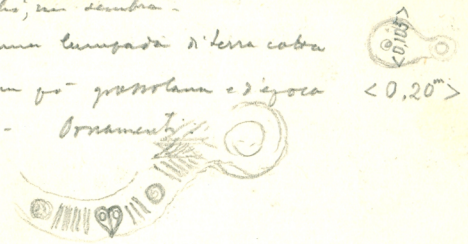 mi sembra -
una lampada di terra cotta
un pò grossolana e d'epoca
- Ornamenti:
<0,105>
<0,20m>